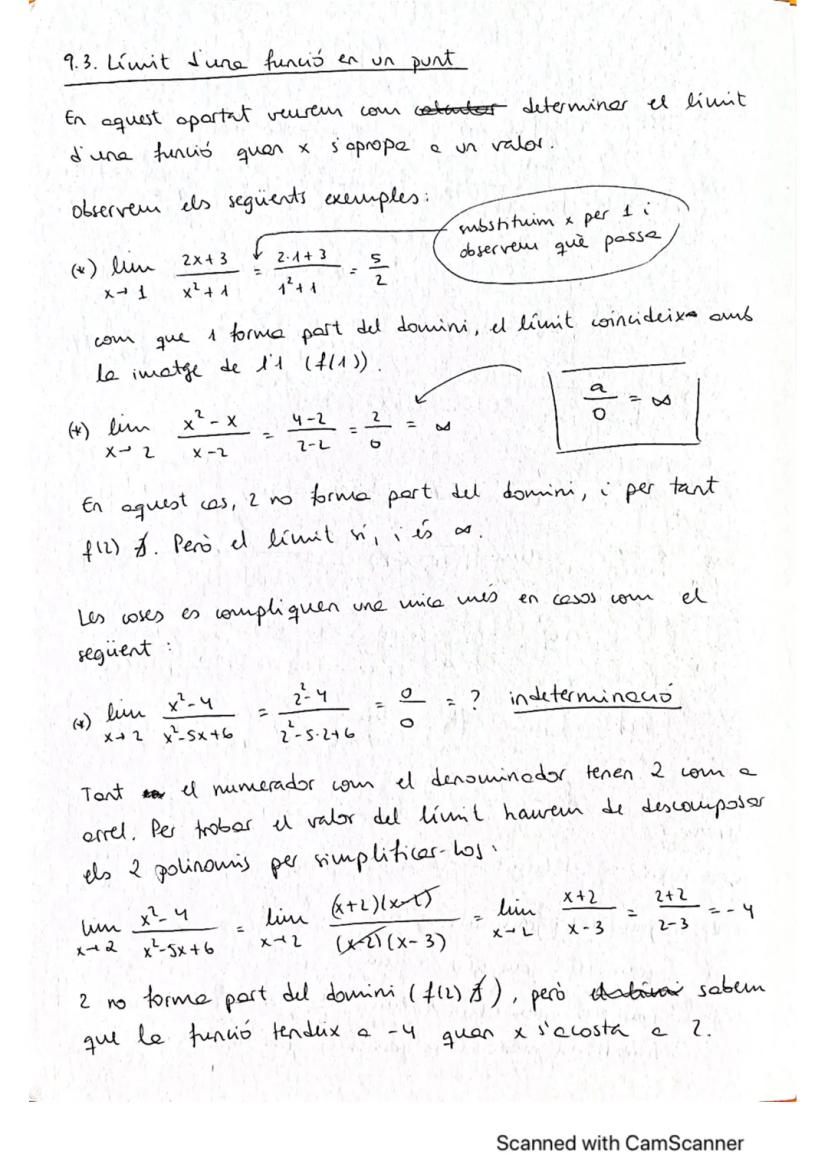 9.3. Límit d'una funció en un punt
En aquest apartat veurem com calcular determinar el límit
d'una funció quan x s'apropa a un valor.
observem els següents exemples:
substituïm x per 1 i
observem què passa
(*) lim x→1 (2x+3)/(x²+1) = (2·1+3)/(1²+1) = 5/2
com que 1 forma part del domini, el límit coincideix amb
la imatge de l'1 (f(1)).
a/0 = ∞
(*) lim x→2 (x²-x)/(x-2) = (4-2)/(2-2) = 2/0 = ∞
En aquest cas, 2 no forma part del domini, i per tant
f(2) ∄. Però el límit sí, i és ∞.
Les coses es compliquen una mica més en casos com el
següent:
(*) lim x→2 (x²-4)/(x²-5x+6) = (2²-4)/(2²-5·2+6) = 0/0 = ? indeterminació
Tant el numerador com el denominador tenen 2 com a
arrel. Per trobar el valor del límit haurem de descomposar
els 2 polinomis per simplificar-los:
lim x→2 (x²-4)/(x²-5x+6) = lim x→2 (x+2)(x-2)/(x-2)(x-3) = lim x→2 (x+2)/(x-3) = (2+2)/(2-3) = -4
2 no forma part del domini (f(2) ∄), però sabem
que la funció tendeix a -4 quan x s'acosta a 2.
Scanned with CamScanner